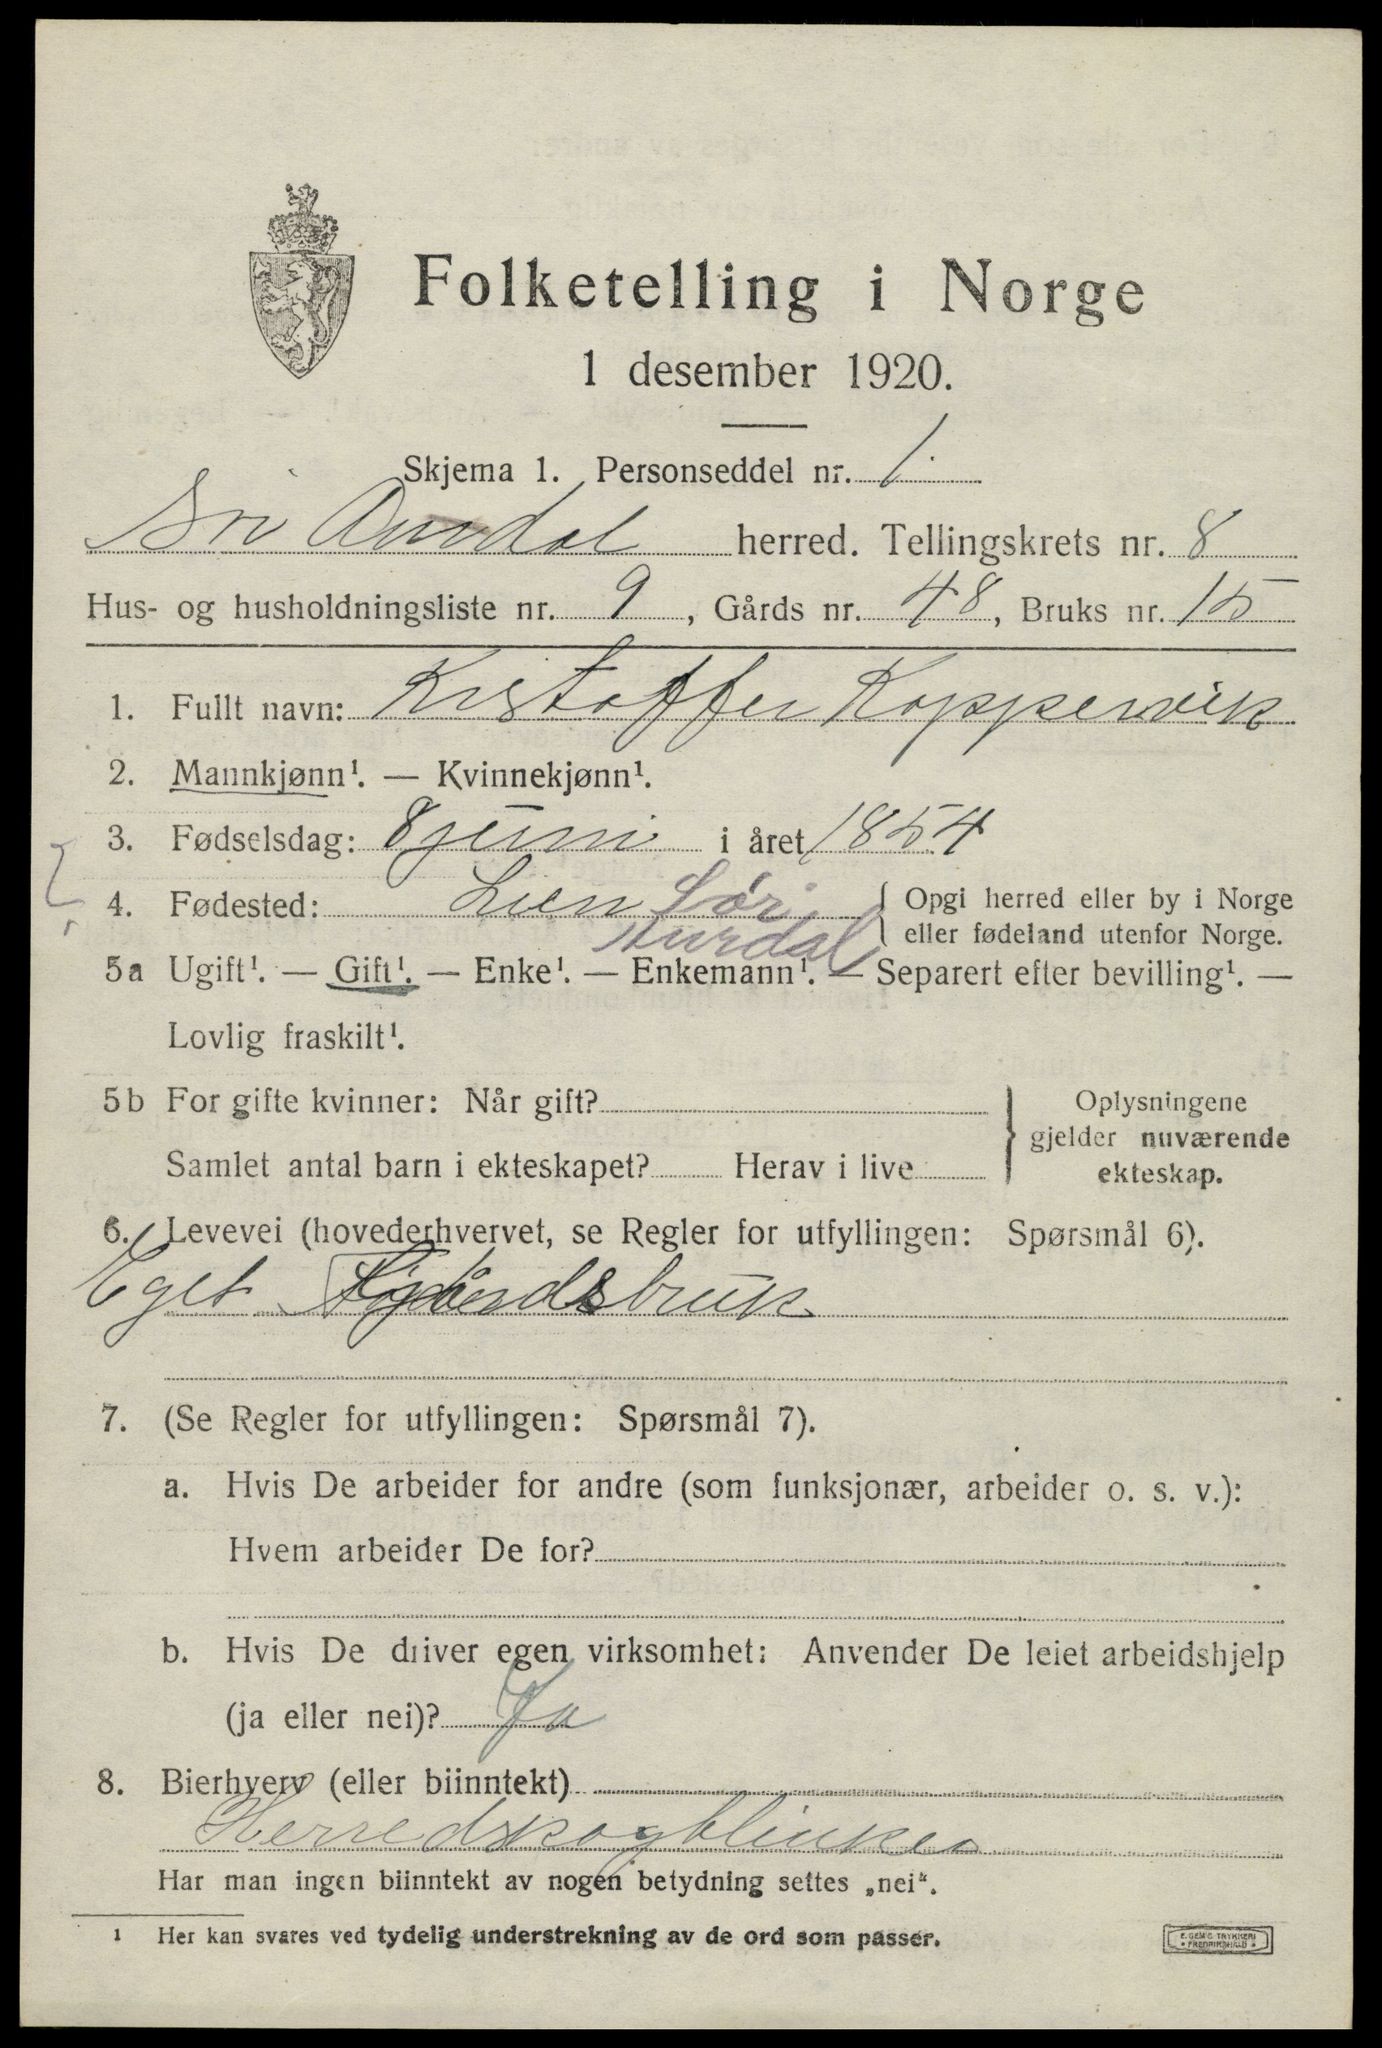 Folketelling i Norge
1 desember 1920.
Skjema 1. Personseddel nr. 1.
Sør Aurdal herred. Tellingskrets nr. 8
Hus- og husholdningsliste nr. 9, Gårds nr. 48, Bruks nr. 15
1. Fullt navn: Kristoffer Koppervik
2. Mannkjønn¹. — Kvinnekjønn¹.
3. Fødselsdag: 8 juni i året 1854
4. Fødested: Lien Sør Aurdal { Opgi herred eller by i Norge
eller fødeland utenfor Norge.
5a Ugift¹. — Gift¹. — Enke¹. — Enkemann¹. — Separert efter bevilling¹. —
Lovlig fraskilt¹.
5b For gifte kvinner: Når gift?
Samlet antal barn i ekteskapet? Herav i live
} Oplysningene
gjelder nuværende
ekteskap.
6. Levevei (hovederhvervet, se Regler for utfyllingen: Spørsmål 6).
Eget bruk
7. (Se Regler for utfyllingen: Spørsmål 7).
a. Hvis De arbeider for andre (som funksjonær, arbeider o. s. v.):
Hvem arbeider De for?
b. Hvis De driver egen virksomhet: Anvender De leiet arbeidshjelp
(ja eller nei)? Ja
8. Bierhverv (eller biinntekt)
Herredskogblinker
Har man ingen biinntekt av nogen betydning settes „nei“.
¹ Her kan svares ved tydelig understrekning av de ord som passer.
E. SEM'S TRYKKERI
• FREDRIKSHALD •